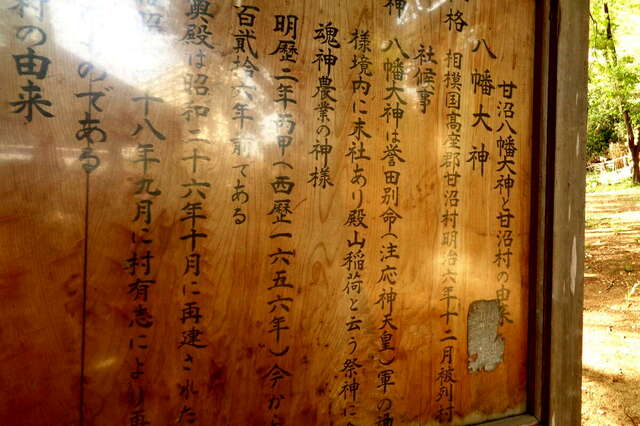 甘沼八幡大神と甘沼村の由来
八幡大神
格 相模国高座郡甘沼村明治六年十二月被列村
社
神 八幡大神は誉田別命(注応神天皇)軍の
様境内に末社あり殿山稲荷と云う祭神に
魂神農業の神様
明歴二年丙申(西歴一六五六年)今から
百貳拾六年前である
奥殿は昭和二十六年十月に再建された
十八年九月に村有志により再
のである
村の由来